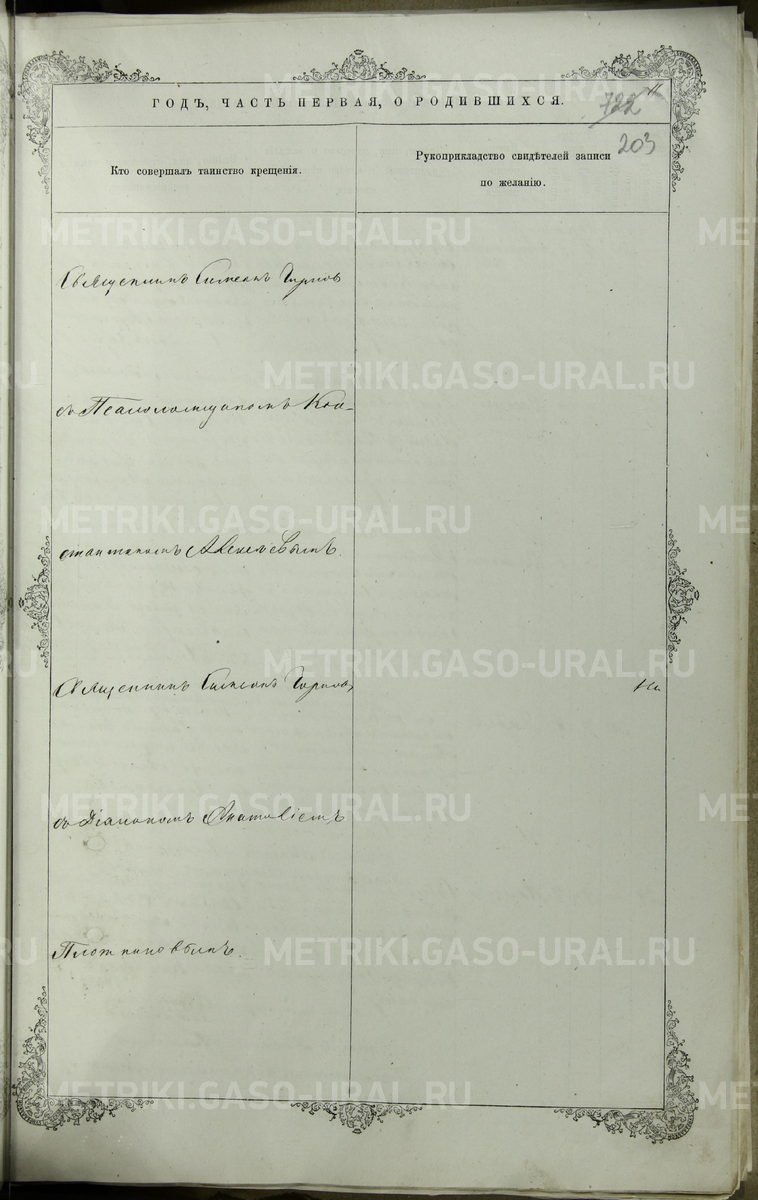 ГОДЪ, ЧАСТЬ ПЕРВАЯ, О РОДИВШИХСЯ.
722
203
Кто совершалъ таинство крещенія.
Рукоприкладство свидѣтелей записи
по желанію.
Священникъ Симеонъ
съ Псаломщикомъ Кон-
стантиномъ Алексѣевымъ.
Священникъ Симеонъ
съ Діакономъ
Плотниковымъ.
METRIKI.GASO-URAL.RU